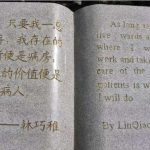 只要我一息
存，我存在的
所便是病房，
的价值便是
病人。
——林巧稚
As long as
live, wards a
where I w
work and tak
care of the
patients is w
I will do
By LinQiao